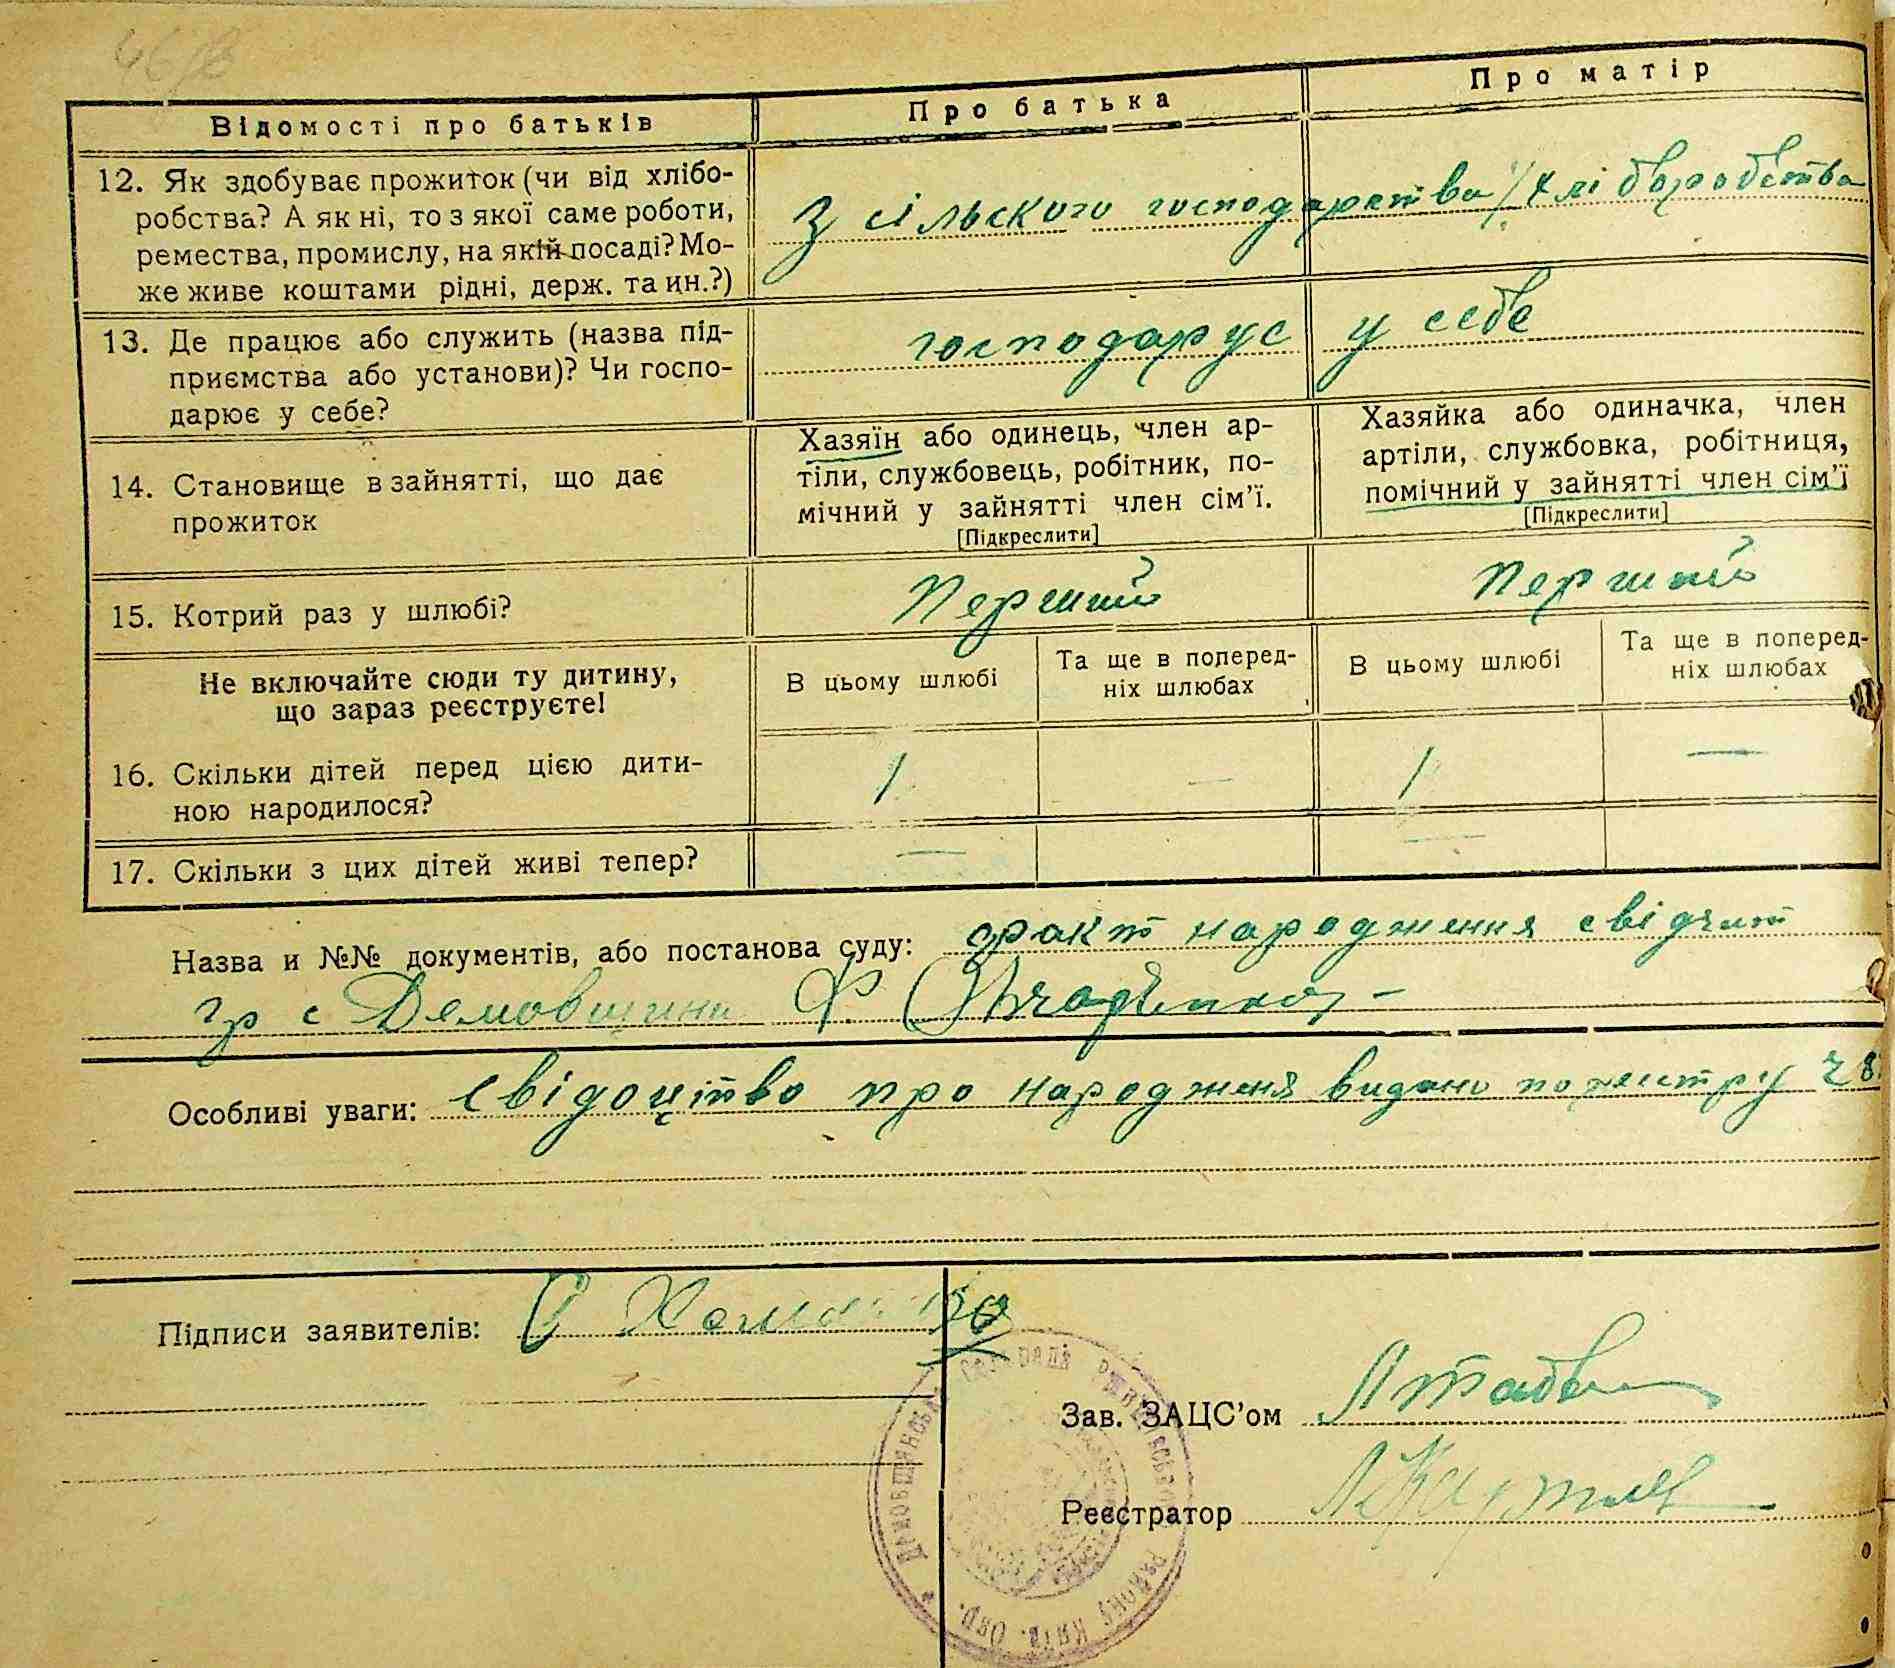 Відомості про батьків
Про батька
Про матір
12. Як здобуває прожиток (чи від хлібо-
робства? А як ні, то з якої саме роботи,
ремества, промислу, на якій посаді? Мо-
же живе коштами рідні, держ. та ин.?)
З сільского господарства / хліборобства
13. Де працює або служить (назва під-
приємства або установи)? Чи госпо-
дарює у себе?
господарує у себе
14. Становище в зайнятті, що дає
прожиток
Хазяїн або одинець, член ар-
тіли, службовець, робітник, по-
мічний у зайнятті член сім'ї.
[Підкреслити]
Хазяйка або одиначка, член
артіли, службовка, робітниця,
помічний у зайнятті член сім'ї
[Підкреслити]
15. Котрий раз у шлюбі?
Перший
Перший
Не включайте сюди ту дитину,
що зараз реєструєте!
В цьому шлюбі
Та ще в поперед-
ніх шлюбах
В цьому шлюбі
Та ще в поперед-
ніх шлюбах
16. Скільки дітей перед цією дити-
ною народилося?
1 — 1 —
17. Скільки з цих дітей живі тепер?
— —
Назва и №№ документів, або постанова суду: факт народження свідчит
гр с Демовщини Ф.
Особливі уваги: свідоцтво про народженя видано по реєстру 28
Підписи заявителів:
Зав. ЗАЦС'ом
Реєстратор
Демовщинська
району Київ. Окр.